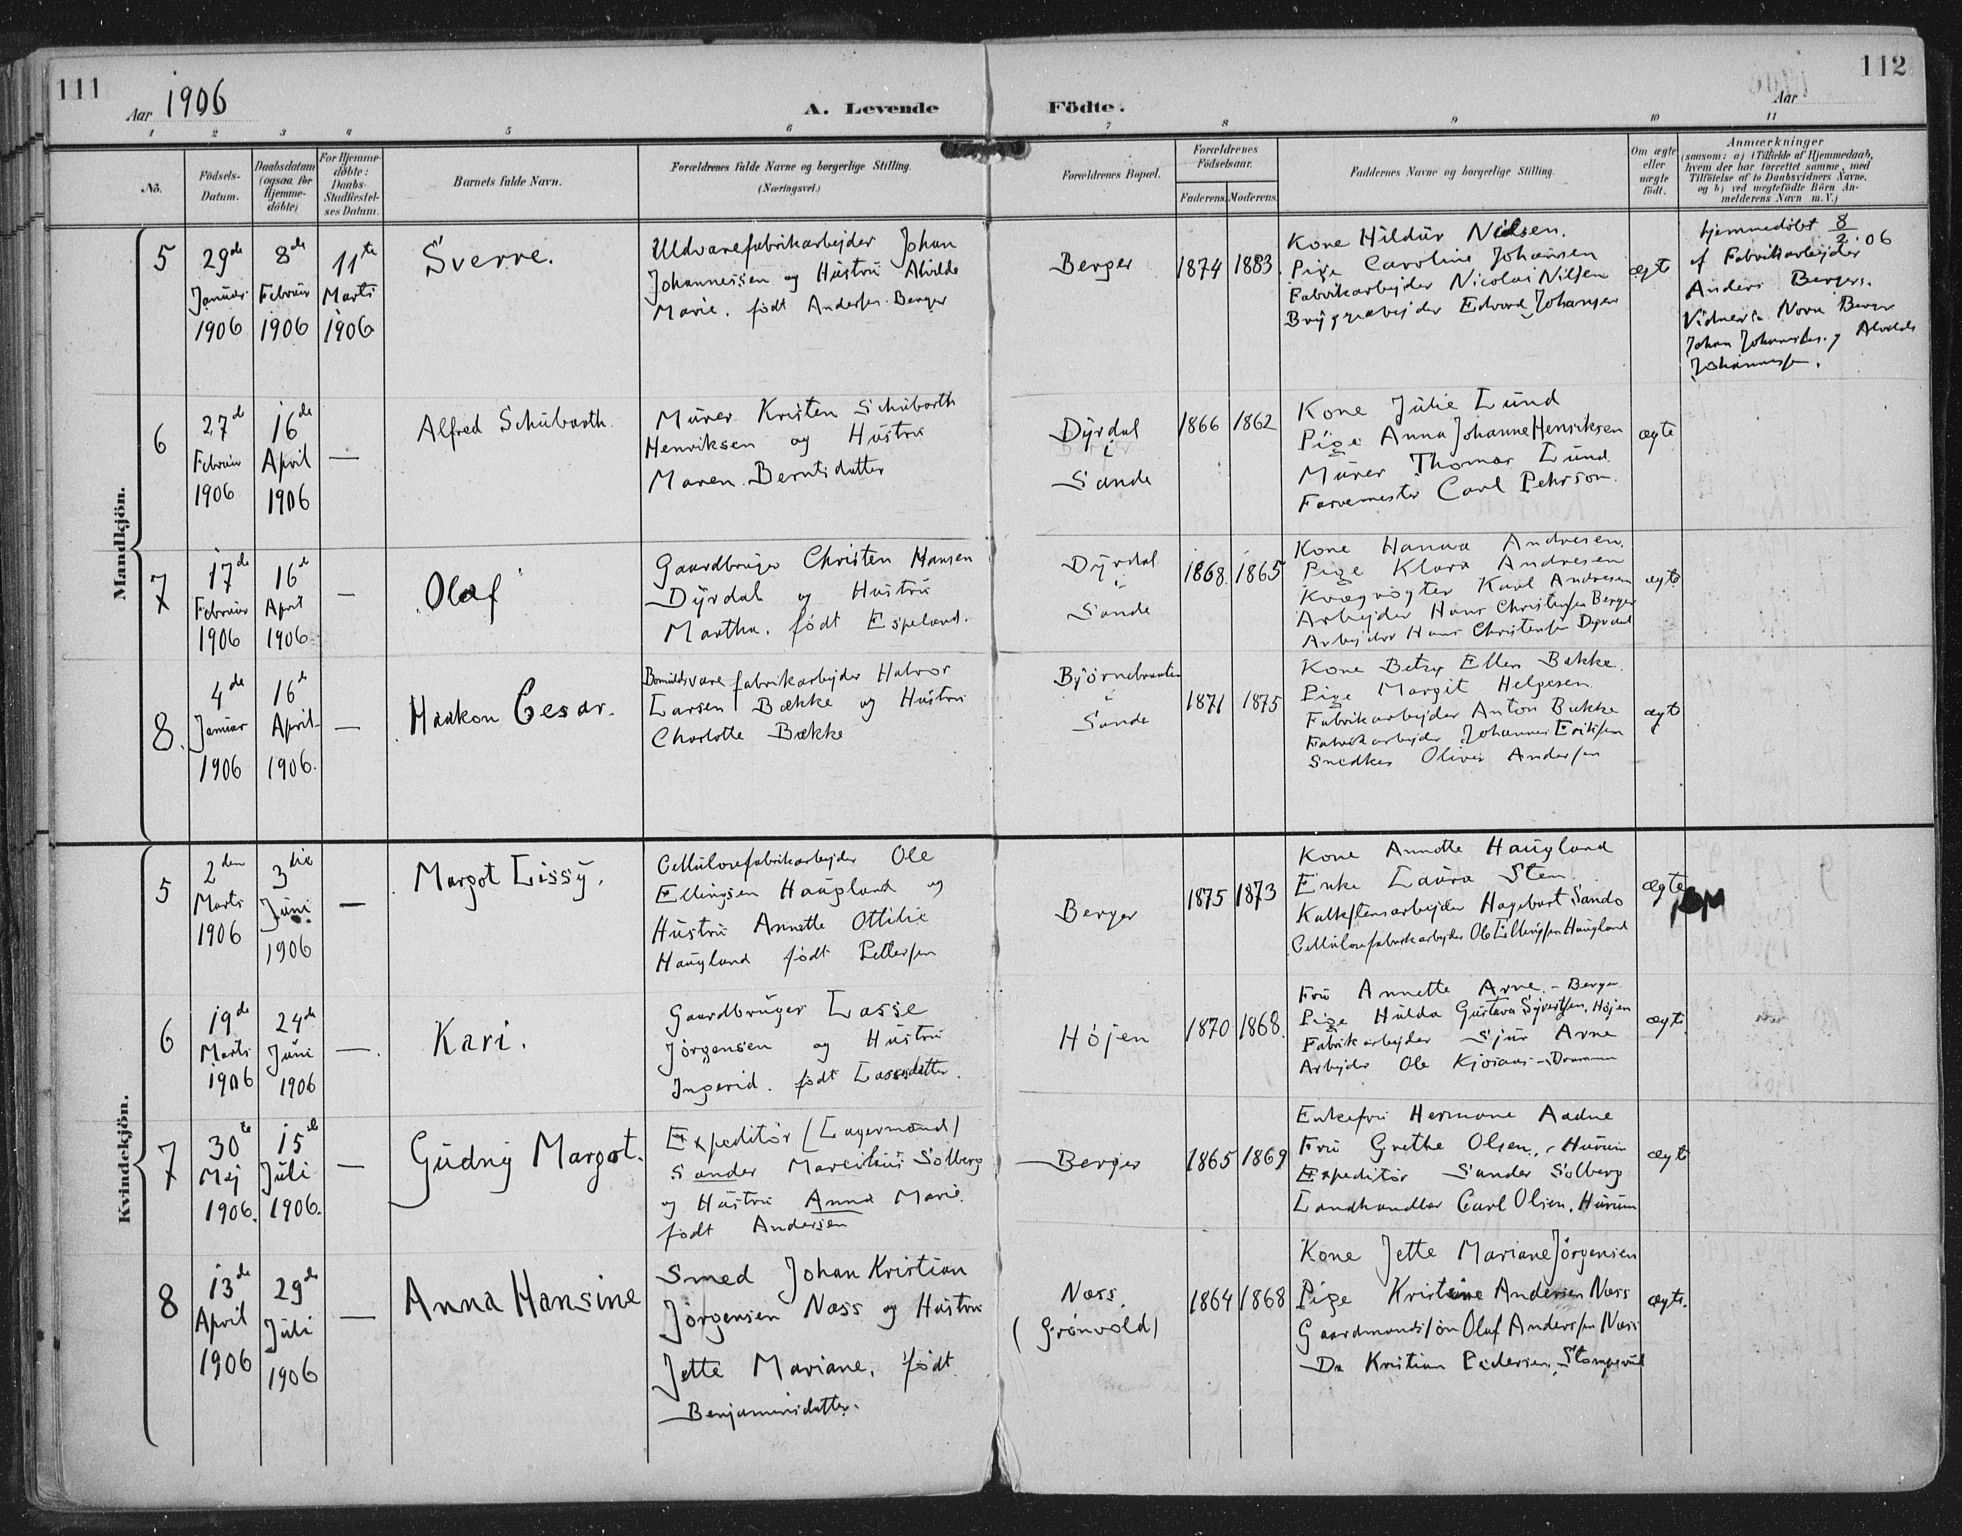 111
Aar 1906
A. Levende Födte.
Aar
112
1 2 3 4 5 6 7 8 9 10 11
No.
Födsels-
Datum.
Daabsdatum
(ogsaa for
Hjemme-
döbte)
For Hjemme-
döbte:
Daabs-
Stadfæstel-
ses Datum.
Barnets fulde Navn.
Forældrenes fulde Navne og borgerlige Stilling.
(Næringsvei.)
Forældrenes Bopæl.
Forældrenes
Födselsaar.
Faderens. Moderens.
Faddernes Navne og borgerlige Stilling.
Om ægte
eller
uægte
födt.
Anmærkninger
(saasom: a) i Tilfælde af Hjemmedaab,
hvem der har forrettet samme, med
Tilföielse af to Daabsvidners Navne,
og b) ved uægtefödte Börn An-
melderens Navn m. V.)
Mandkjön.
5
29de
Januar
1906
8de
Februar
1906
11te
Marts
1906
Sverre.
Uldvarefabrikarbejder Johan
Johannessen og Hustru Alvilde
Marie. født Andersen. Berger
Berger
1874 1883.
Kone Hildur Nilsen.
Pige Caroline Johansen
Fabrikarbejder Nicolai Nilsen
Bryggearbejder Edvard Johansen
ægte
hjemmedøbt 8/2.06
af Fabrikarbejder
Anders Berger.
Vidner: Nora Berger
Johan Johannes. og Alvilde
Johannessen.
6
27de
Februar
1906
16de
April
1906
—
Alfred Schubarth.
Murer Kristen Schubarth
Henriksen og Hustru
Maren Berntsdatter
Dyrdal
i
Sande
1866 1862
Kone Julie Lund
Pige Anna Johanne Henriksen
Murer Thomas Lund.
Farvemester Carl Pehrson.
ægte
7
17de
Februar
1906
16de
April
1906
—
Olaf
Gaardbruger Christen Hansen
Dyrdal og Hustru
Martha. født Espeland.
Dyrdal
i
Sande
1868. 1865
Kone Hanna Andresen.
Pige Klara Andresen
Kvægrøgter Karl Andresen
Arbejder Hans Christensen Berger
Arbejder Hans Christensen Dyrdal
ægte
8.
4de
Januar
1906
16de
April
1906.
—
Haakon Cesar.
Bomuldsvarefabrikarbejder Halvor
Larsen Bække og Hustru
Charlotte Bække
i
Sande
1871 1875
Kone Betzy Ellen Bakke.
Pige Margit Helgesen
Fabrikarbejder Anton Bakke
Fabrikarbejder Johannes Eriksen
Snedker Oliver Andersen
ægte
Kvindekjön.
5
2den
Marts
1906
3die
Juni
1906
—
Margot Lissy.
Cellulosefabrikarbejder Ole
Ellingsen Haugland og
Hustru Annette Ottilie
Haugland født Pettersen
Berger
1875 1873
Kone Annette Haugland
Enke Laura Sten
Kalkstensarbejder Hagebart Sando
Cellulosefabrikarbejder Ole Ellingsen Haugland
ægte
6
19de
Marts
1906
24de
Juni
1906
—.
Kari.
Gaardbruger Lasse
Jørgensen og Hustru
Ingerid. født Lassedatter.
Højen
1870 1868.
Fru Annette Arne - Berger
Pige Hulda Gustava Syvertsen, Højen
Fabrikarbejder Sjur Arne
Arbejder Ole
ægte.
7
30te
Maj
1906.
15de
Juli
1906.
—
Gudny Margot.
Expeditør (Lagermand)
Sander Marcilius Solberg
og Hustru Anna Marie.
født Andersen
Berger
1865 1869
Enkefru Hermane Aadne
Fru Grethe Olsen. - Hurum
Expeditør Sander Solberg
Landhandler Carl Olsen. Hurum
ægte
8
13de
April
1906
29de
Juli
1906
—
Anna Hansine
Smed Johan Kristian
Jørgensen Næss og Hustru
Jette Mariane. født
Benjaminsdatter.
Næss.
(Grønvold)
1864 1868
Kone Jette Mariane Jørgensen
Pige Kristine Andersen Næss
Gaardmandssøn Olaf Anderssen Næss
Do Kristian Pedersen.
ægte.